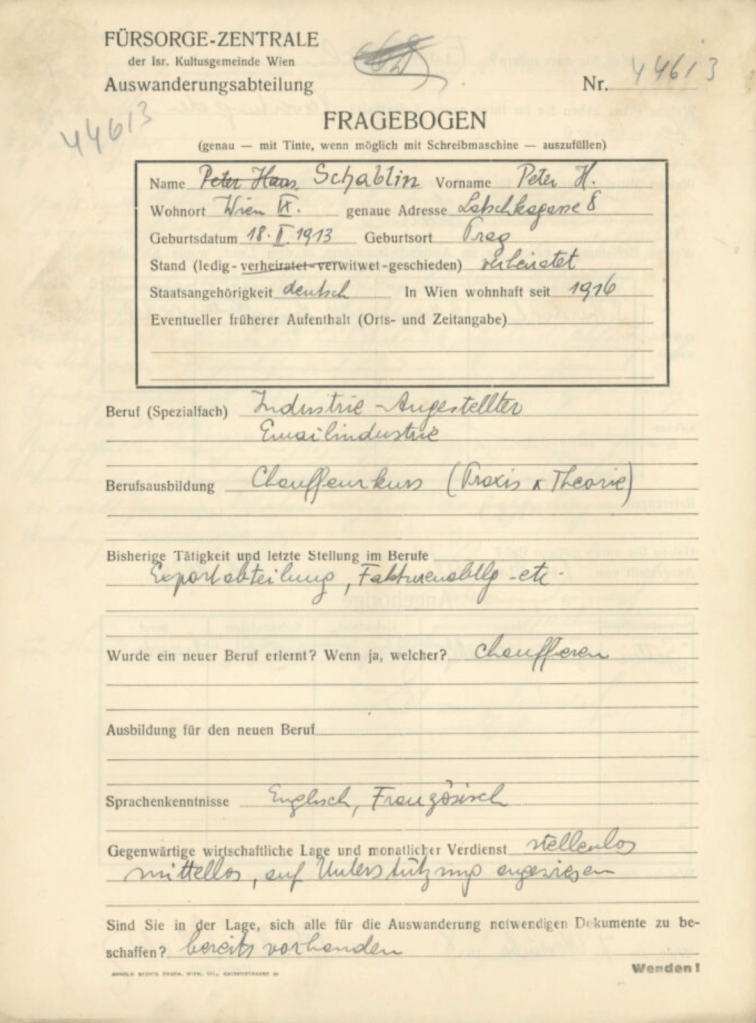 FÜRSORGE-ZENTRALE
der Isr. Kultusgemeinde Wien
Auswanderungsabteilung
Nr. 44613
44613
FRAGEBOGEN
(genau — mit Tinte, wenn möglich mit Schreibmaschine — auszufüllen)
Name Peter Haas Schablin Vorname Peter H.
Wohnort Wien IX. genaue Adresse Latschkagasse 8
Geburtsdatum 18. II. 1913 Geburtsort Prag
Stand (ledig-verheiratet-verwitwet-geschieden) verheiratet
Staatsangehörigkeit deutsch In Wien wohnhaft seit 1916
Eventueller früherer Aufenthalt (Orts- und Zeitangabe)
Beruf (Spezialfach) Industrie-Angestellter
Emailindustrie
Berufsausbildung Chauffeurkurs (Praxis & Theorie)
Bisherige Tätigkeit und letzte Stellung im Berufe
Exportabteilung, Fakturenabtlg etc.
Wurde ein neuer Beruf erlernt? Wenn ja, welcher? chauffieren
Ausbildung für den neuen Beruf
Sprachenkenntnisse Englisch, Französisch
Gegenwärtige wirtschaftliche Lage und monatlicher Verdienst stellenlos
mittellos, auf Unterstützung angewiesen
Sind Sie in der Lage, sich alle für die Auswanderung notwendigen Dokumente zu be-
schaffen? bereits vorhanden
Wenden!